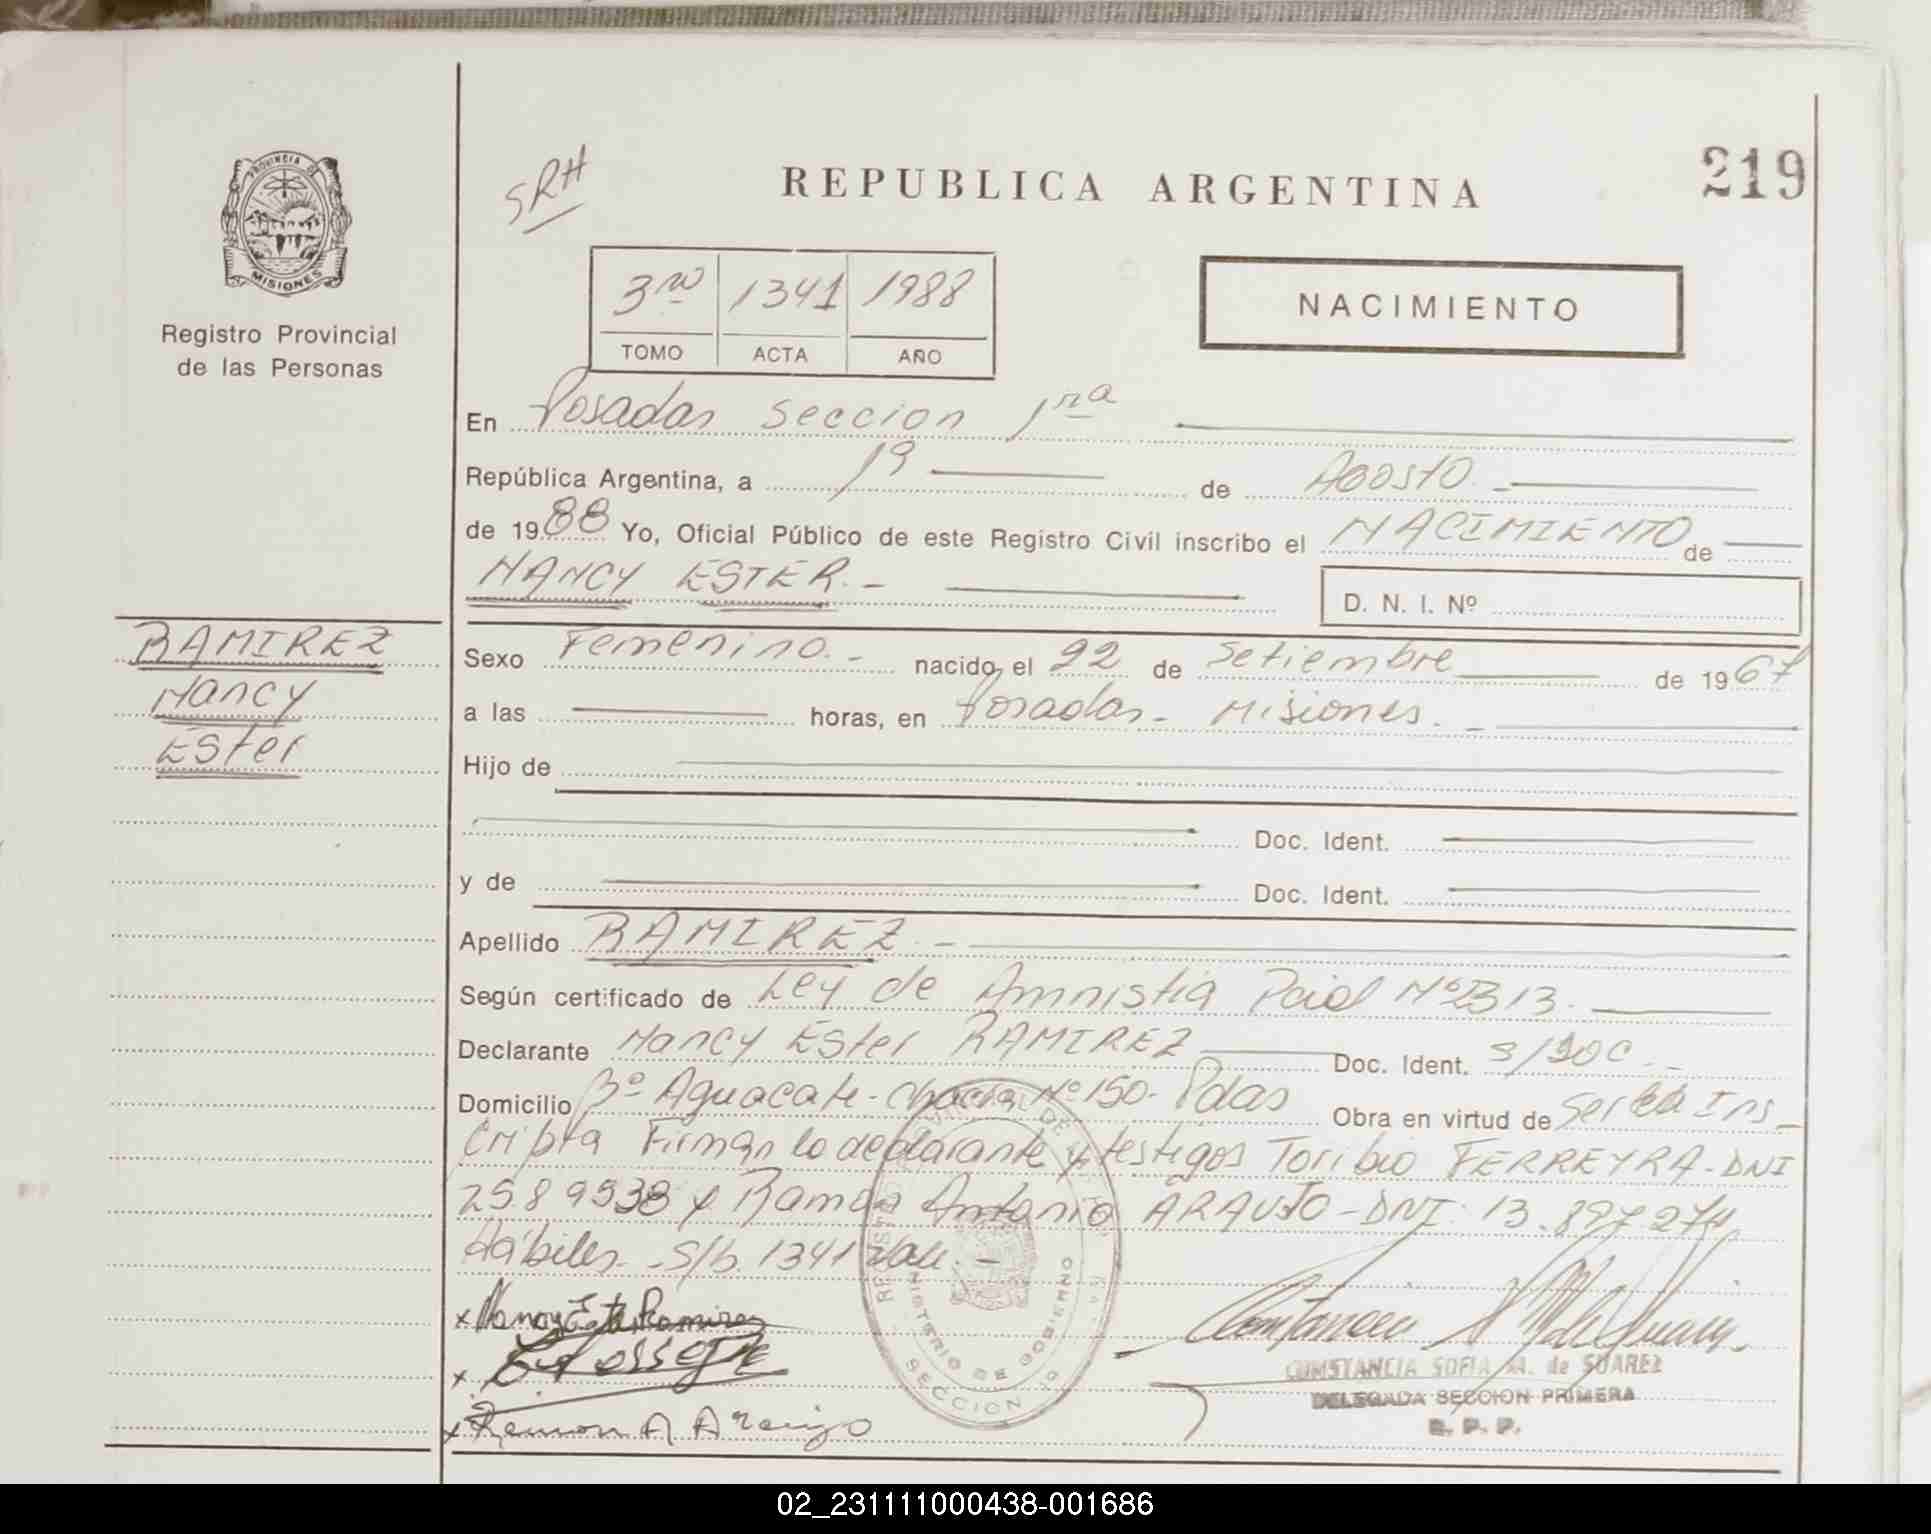 219
SRH
REPUBLICA ARGENTINA
PROVINCIA DE
MISIONES
Registro Provincial
de las Personas
3ro 1341 1988
TOMO ACTA AÑO
NACIMIENTO
En Posadas Seccion 1ra
República Argentina, a 19 de Agosto
de 1988 Yo, Oficial Público de este Registro Civil inscribo el NACIMIENTO de
NANCY ESTER.-
D. N. I. Nº
RAMIREZ
Nancy
Ester
Sexo Femenino.- nacido el 22 de Setiembre de 1967
a las horas, en Posadas - Misiones.
Hijo de
Doc. Ident.
y de Doc. Ident.
Apellido RAMIREZ.-
Según certificado de Ley de Amnistia Pcial Nº 2313.
Declarante Nancy Ester RAMIREZ Doc. Ident. s/Doc.-
Domicilio Bº Aguacate - Chacra Nº 150 - Pdas Obra en virtud de Ser ella Ins-
cripta Firman la declarante y testigos Toribio FERREYRA - DNI
2589538 y Ramon Antonio ARAUJO - DNI: 13.897.274
Hábiles - S/b. 1341 Vale.-
x Nancy Ester Ramirez
x
x Ramon A Araujo
MINISTERIO DE GOBIERNO
SECCION 1ª
CONSTANCIA SOFIA M. de SUAREZ
DELEGADA SECCION PRIMERA
R. P. P.
02_231111000438-001686